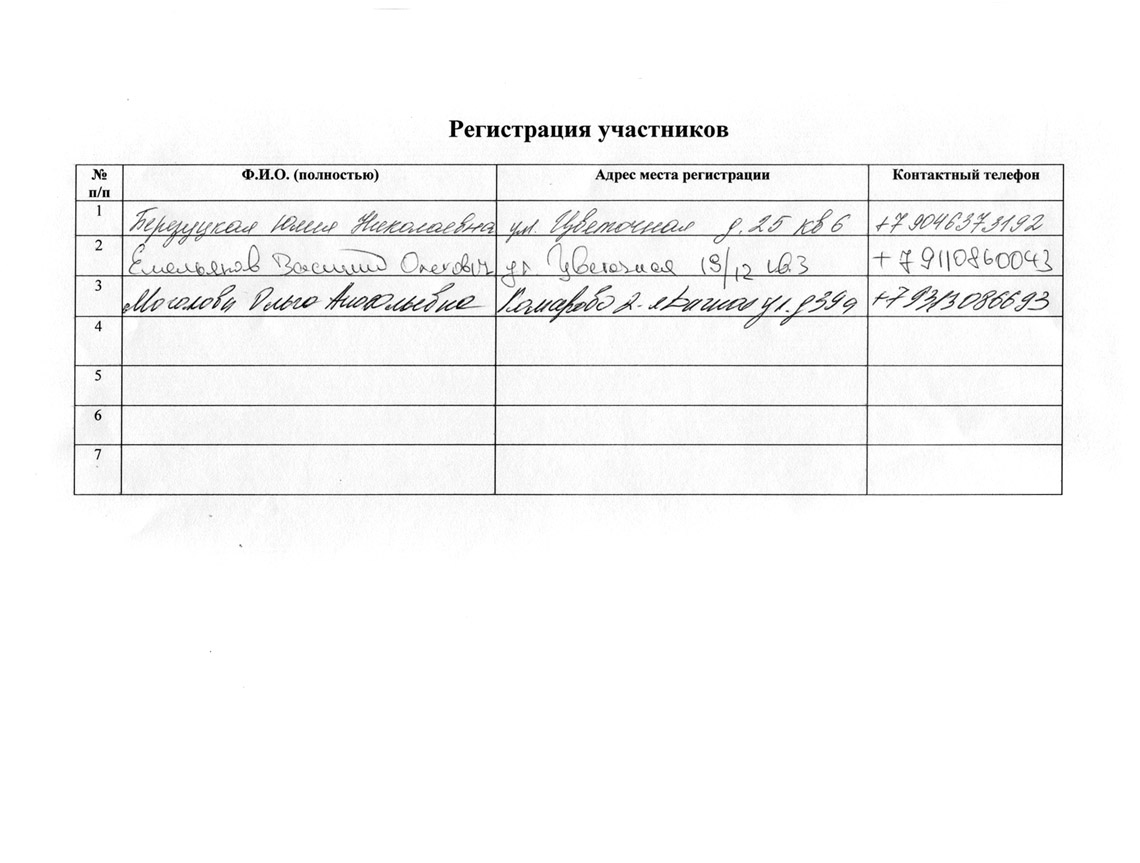 Регистрация участников
№ п/п Ф.И.О. (полностью) Адрес места регистрации Контактный телефон
1 Юлия Николаевна ул. Цветочная д. 25 кв 6 +79046373192
2 Емельянов Василий Олегович ул. Цветочная 19/12 кв3 +79110860043
3 Ольга Анатольевна Комарово 2-я ул. д 39а +79313086693
4
5
6
7